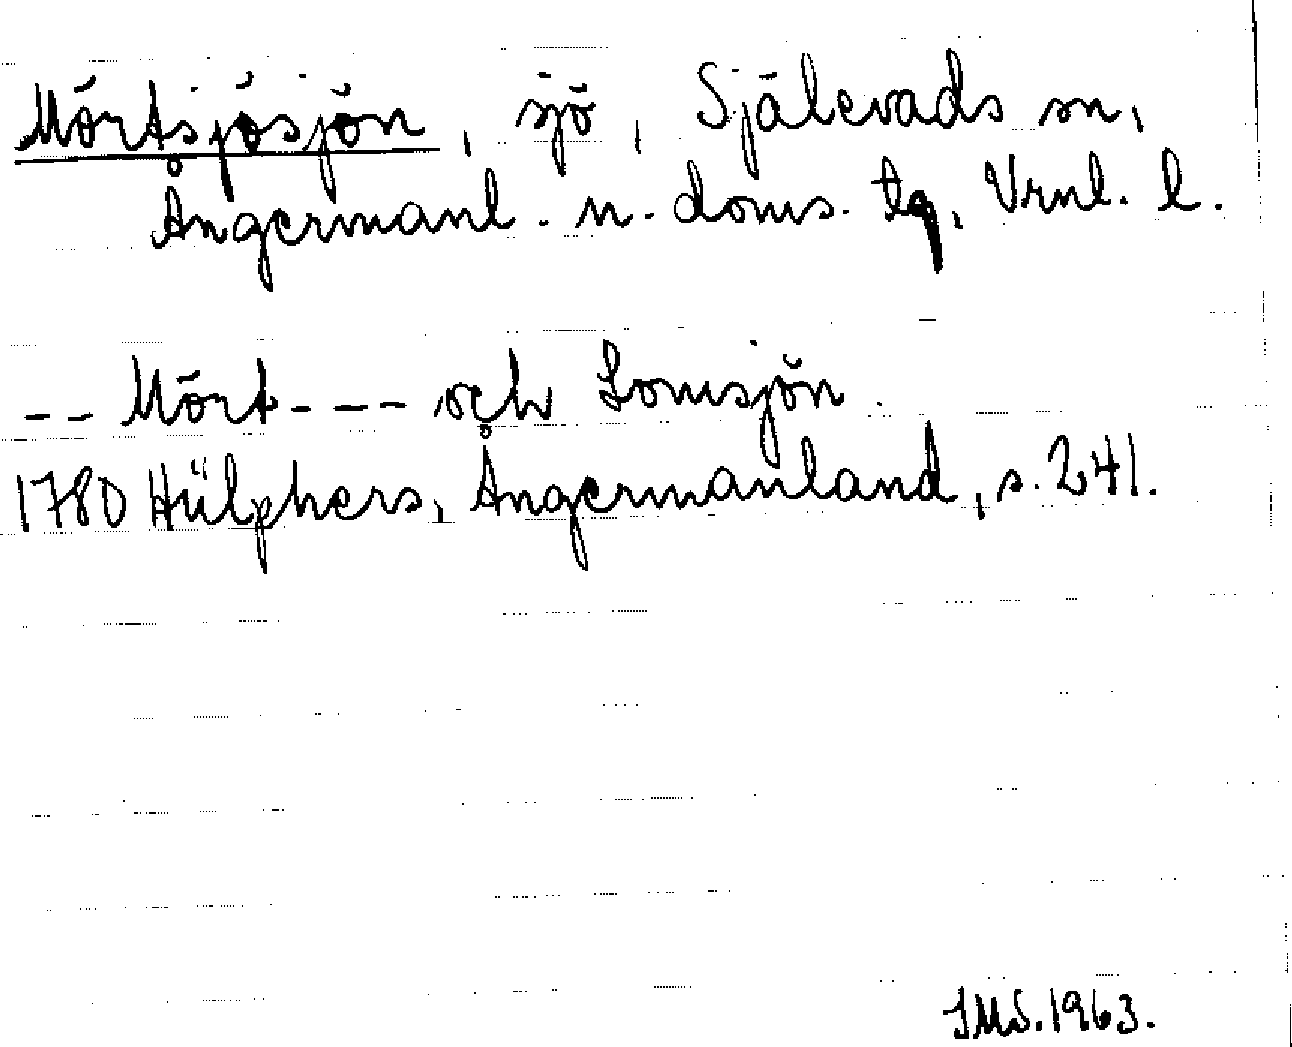 Mörtsjösjön, sjö, Själevads sn,
Ångermanl. n. doms. tg, Vrnl. l.
-- Mört --- och Lomsjön.
1780 Hülphers, Ångermanland, s. 241.
IMS. 1963.